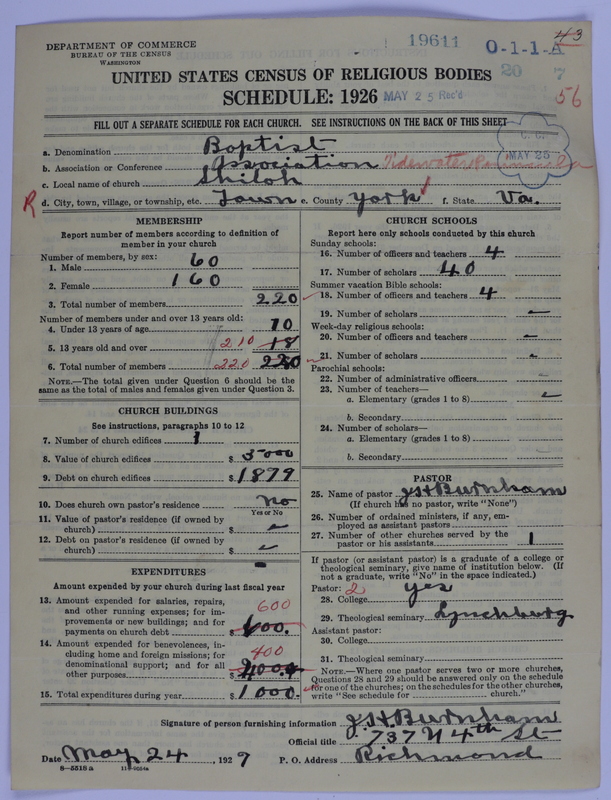 DEPARTMENT OF COMMERCE
BUREAU OF THE CENSUS
WASHINGTON
19611
0-1-1-A
43
20 7
56
UNITED STATES CENSUS OF RELIGIOUS BODIES
SCHEDULE: 1926
MAY 25 Rec'd
FILL OUT A SEPARATE SCHEDULE FOR EACH CHURCH. SEE INSTRUCTIONS ON THE BACK OF THIS SHEET
MAY 25
a. Denomination Baptist
b. Association or Conference Association Tidewater Peninsula
c. Local name of church Shiloh
R d. City, town, village, or township, etc. Town e. County York f. State Va.
MEMBERSHIP
Report number of members according to definition of
member in your church
Number of members, by sex:
1. Male 60
2. Female 160
3. Total number of members 220
Number of members under and over 13 years old:
4. Under 13 years of age 10
5. 13 years old and over 210 18
6. Total number of members 220 220
NOTE.—The total given under Question 6 should be the
same as the total of males and females given under Question 3.
CHURCH BUILDINGS
See instructions, paragraphs 10 to 12
7. Number of church edifices 1
8. Value of church edifices $ 5000
9. Debt on church edifices $ 1879
10. Does church own pastor's residence No
Yes or No
11. Value of pastor's residence (if owned by
church) $
12. Debt on pastor's residence (if owned by
church) $
EXPENDITURES
Amount expended by your church during last fiscal year
13. Amount expended for salaries, repairs,
and other running expenses; for im-
provements or new buildings; and for
payments on church debt 600 $ 600.
14. Amount expended for benevolences, in-
cluding home and foreign missions; for
denominational support; and for all
other purposes 400 $ 400.
15. Total expenditures during year $ 1000.
CHURCH SCHOOLS
Report here only schools conducted by this church
Sunday schools:
16. Number of officers and teachers 4
17. Number of scholars 40
Summer vacation Bible schools:
18. Number of officers and teachers 4
19. Number of scholars —
Week-day religious schools:
20. Number of officers and teachers —
21. Number of scholars —
Parochial schools:
22. Number of administrative officers
23. Number of teachers—
a. Elementary (grades 1 to 8) —
b. Secondary
24. Number of scholars—
a. Elementary (grades 1 to 8)
b. Secondary
PASTOR
25. Name of pastor J S H Burnham
(If church has no pastor, write "None")
26. Number of ordained ministers, if any, em-
ployed as assistant pastors
27. Number of other churches served by the
pastor or his assistants 1
If pastor (or assistant pastor) is a graduate of a college or
theological seminary, give name of institution below. (If
not a graduate, write "No" in the space indicated.)
Pastor: 2 yes
28. College
29. Theological seminary Lynchburg
Assistant pastor:
30. College
31. Theological seminary
NOTE.—Where one pastor serves two or more churches,
Questions 28 and 29 should be answered only on the schedule
for one of the churches; on the schedules for the other churches,
write "See schedule for church."
Signature of person furnishing information J S H Burnham
Official title 737 N 4th St
Date May 24, 1927 P. O. Address Richmond
8—5518a